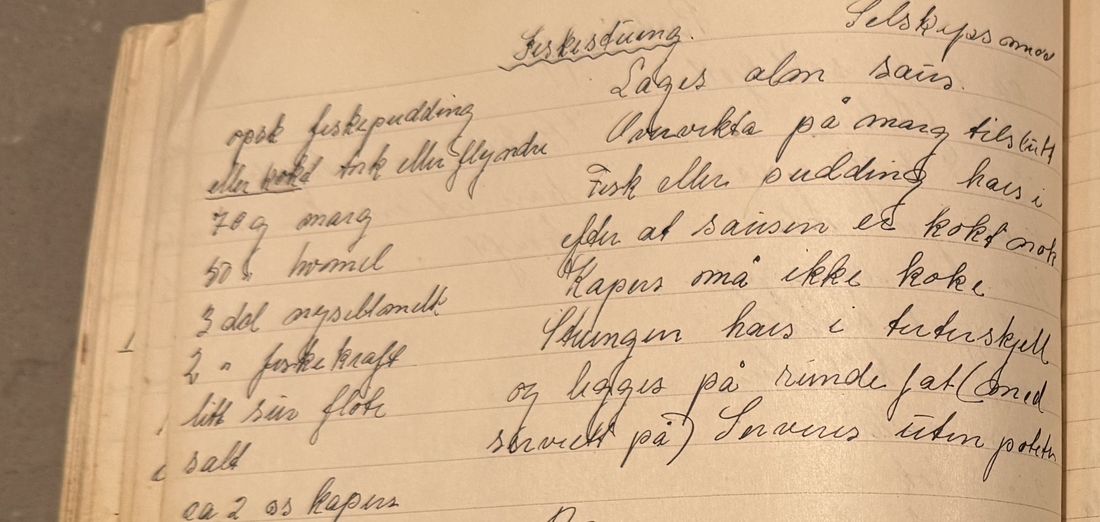 Fiskestuing.
Selskapsmat
opsk fiskepudding
eller kokt torsk eller flyndre
70 g marg
50 " hvemel
3 del nysiltmelk
2 " fiskekraft
litt sur fløte
salt
ca 2 ss kapers
Lages alm saus.
på marg tilslutt
Fisk eller pudding haes i
efter at sausen er kokt nok
Kapers må ikke koke
Stuingen haes i
og legges på runde fat (med
serviett på) Serveres uten poteter